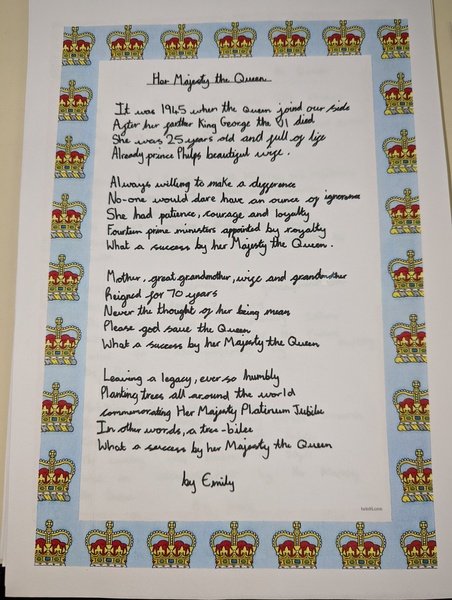 Her Majesty the Queen
It was 1945 when the Queen joind our side
After her farther King George the VI died
She was 25 years old and full of life
Already prince Philps beautiful wife.
Always willing to make a difference
No-one would dare have an ounce of ignorance
She had patience, courage and loyalty
Fourteen prime ministers appointed by royalty
What a success by her Majesty the Queen.
Mother, great grandmother, wife and grandmother
Reigned for 70 years
Never the thought of her being mean
Please god save the Queen
What a success by her Majesty the Queen
Leaving a legacy, ever so humbly
Planting trees all around the world
commemorating Her Majesty Platinum Jubilee
In other words, a tree-bilee
What a success by her Majesty the Queen
by Emily
twinkl.com